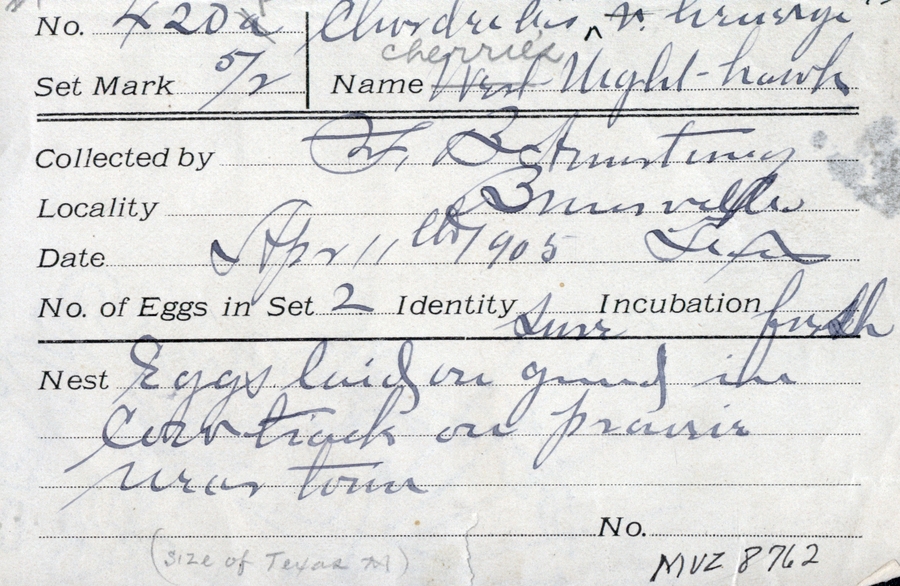 No. 420a Chordeiles v. henryi
cherrie's
Set Mark 5/2 Name West Night-hawk
Collected by F. B. Armstrong
Locality Brownsville
Date Apr 11th 1905 Tex
No. of Eggs in Set 2 Identity sure Incubation fresh
Nest Eggs laid on ground in
cow track on prairie
near town
No.
(size of Texas N) MVZ 8762